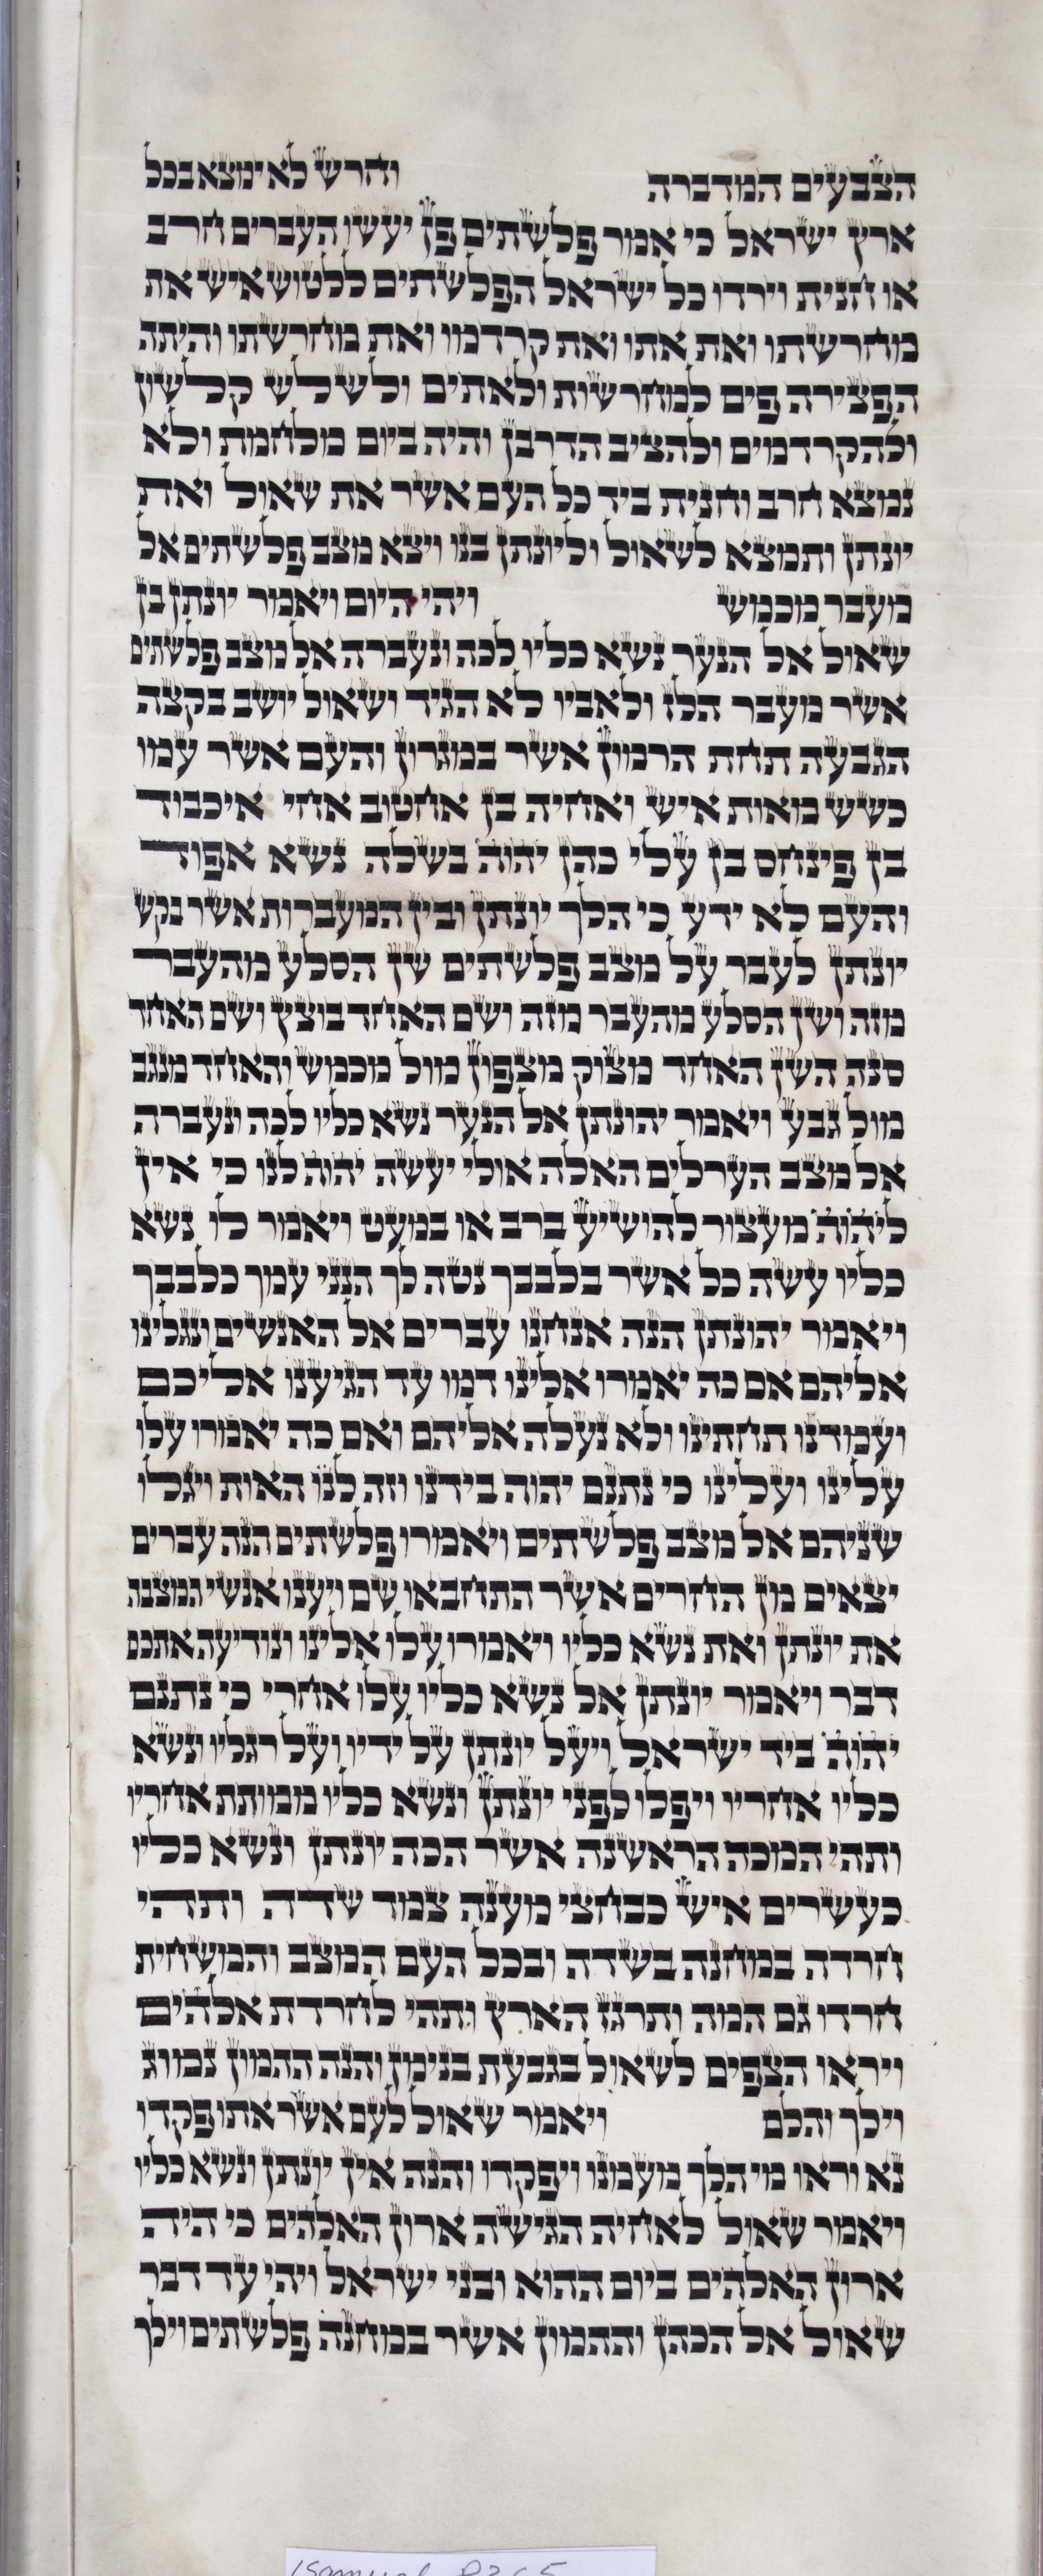 הצבעים המדברה וחרש לא ימצא בכל
ארץ ישראל כי אמר פלשתים פן יעשו העברים חרב
או חנית וירדו כל ישראל הפלשתים ללטוש איש את
מחרשתו ואת אתו ואת קרדמו ואת מחרשתו והיתה
הפצירה פים למחרשות ולאתים ולשלש קלשון
ולהקרדמים ולהציב הדרבן והיה ביום מלחמת ולא
נמצא חרב וחנית ביד כל העם אשר את שאול ואת
יונתן ותמצא לשאול וליונתן בנו ויצא מצב פלשתים אל
מעבר מכמש ויהי היום ויאמר יונתן בן
שאול אל הנער נשא כליו לכה ונעברה אל מצב פלשתים
אשר מעבר הלז ולאביו לא הגיד ושאול יושב בקצה
הגבעה תחת הרמון אשר במגרון והעם אשר עמו
כשש מאות איש ואחיה בן אחטוב אחי איכבוד
בן פינחס בן עלי כהן יהוה בשלה נשא אפוד
והעם לא ידע כי הלך יונתן ובין המעברות אשר בקש
יונתן לעבר על מצב פלשתים שן הסלע מהעבר
מזה ושן הסלע מהעבר מזה ושם האחד בוצץ ושם האחד
סנה השן האחד מצוק מצפון מול מכמש והאחד מנגב
מול גבע ויאמר יהונתן אל הנער נשא כליו לכה ונעברה
אל מצב הערלים האלה אולי יעשה יהוה לנו כי אין
ליהוה מעצור להושיע ברב או במעט ויאמר לו נשא
כליו עשה כל אשר בלבבך נטה לך הנני עמך כלבבך
ויאמר יהונתן הנה אנחנו עברים אל האנשים ונגלינו
אליהם אם כה יאמרו אלינו דמו עד הגיענו אליכם
ועמדנו תחתינו ולא נעלה אליהם ואם כה יאמרו עלו
עלינו ועלינו כי נתנם יהוה בידנו וזה לנו האות ויגלו
שניהם אל מצב פלשתים ויאמרו פלשתים הנה עברים
יצאים מן החרים אשר התחבאו שם ויענו אנשי המצבה
את יונתן ואת נשא כליו ויאמרו עלו אלינו ונודיעה אתכם
דבר ויאמר יונתן אל נשא כליו עלה אחרי כי נתנם
יהוה ביד ישראל ויעל יונתן על ידיו ועל רגליו ונשא
כליו אחריו ויפלו לפני יונתן ונשא כליו ממותת אחריו
ותהי המכה הראשנה אשר הכה יונתן ונשא כליו
כעשרים איש כבחצי מענה צמד שדה ותהי
חרדה במחנה בשדה ובכל העם המצב והמשחית
חרדו גם המה ותרגז הארץ ותהי לחרדת אלהים
ויראו הצפים לשאול בגבעת בנימן והנה ההמון נמוג
וילך והלם ויאמר שאול לעם אשר אתו פקדו
נא וראו מי הלך מעמנו ויפקדו והנה אין יונתן ונשא כליו
ויאמר שאול לאחיה הגישה ארון האלהים כי היה
ארון האלהים ביום ההוא ובני ישראל ויהי עד דבר
שאול אל הכהן וההמון אשר במחנה פלשתים וילך